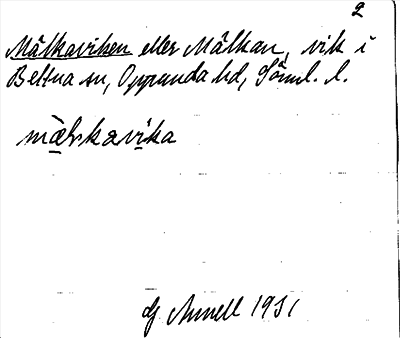 2
Målkaviken eller Målkan, vik i
Bettna sn, Oppunda hd, Söml. l.
målskavika
G Annell 1931